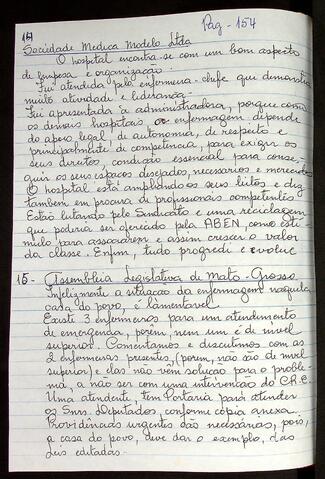 Pag - 154
Sociedade Medica Modelo Ltda
O hospital encontra-se com um bom aspecto
de limpesa e organização.
Fui atendida pela enfermeira-chefe que demonstra
muito atividade e liderança.
Fui apresentada à administradora, porque como
os demais hospitais a enfermagem depende
do apoio legal, de autonomia, de respeito e
principalmente de competencia, para exigir os
seus direitos, condução essencial para conse-
guir os seus espaços desejados, necessarios e merecidos
O hospital está ampliando os seus leitos e diz
tambem em procura de profissionais competentes
Estão lutando pelo Sindicato e uma reciclagem
que poderia ser oferecido pela ABEN, como estí-
mulo para associarem e assim crescer o valor
da classe. Enfim, tudo progredi e evolue
15 - Assembleia Legislativa de Mato-Grosso
Infelizmente a situação da enfermagem naquela
casa do povo, é lamentavel.
Existi 3 enfermeiros para um atendimento
de emergencia, porém, nem um é de nivel
superior. Comentamos e discutimos com as
2 enfermeiras presentes, (porem, não são de nivel
superior) e elas não vêm solução para o proble-
ma, a não ser com uma intervenção do C.R.E.
Uma atendente, tem Portaria para atender
os Snrs. Deputados, conforme cópia anexa.
Providências urgentes são necessárias, pois,
a casa do povo, deve dar o exemplo, das
leis editadas.